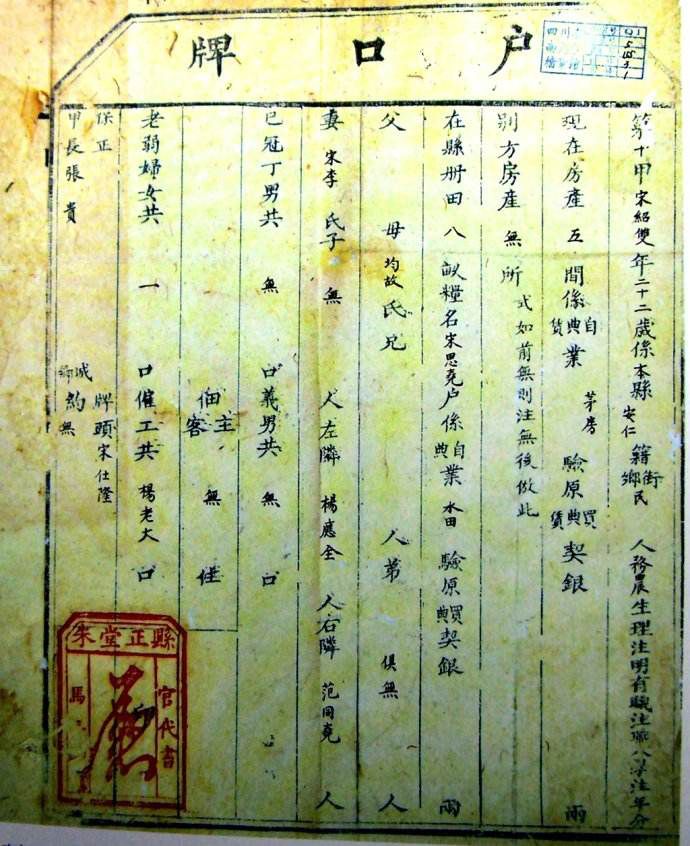 户口牌
第十甲宋紹雙年二十二歲係本縣安仁鄉街籍民人務農生理注明有職注職入學注年分
現在房產五間係自典賃業茅房驗原買典賃契銀兩
別方房產無所式如前無則注無後倣此
在縣册田八畝糧名宋思堯户係自典業水田驗原買典契銀兩
父母均故氏兄人弟俱無人
妻宋李氏子無人左隣楊應全人右隣范同堯人
已冠丁男共無口義男共無口
主佃客無住
老弱婦女共一口僱工共楊老大口
保正城鄉約無牌頭宋仕隆
甲長張貴
縣正堂朱
官代書
馬
四川